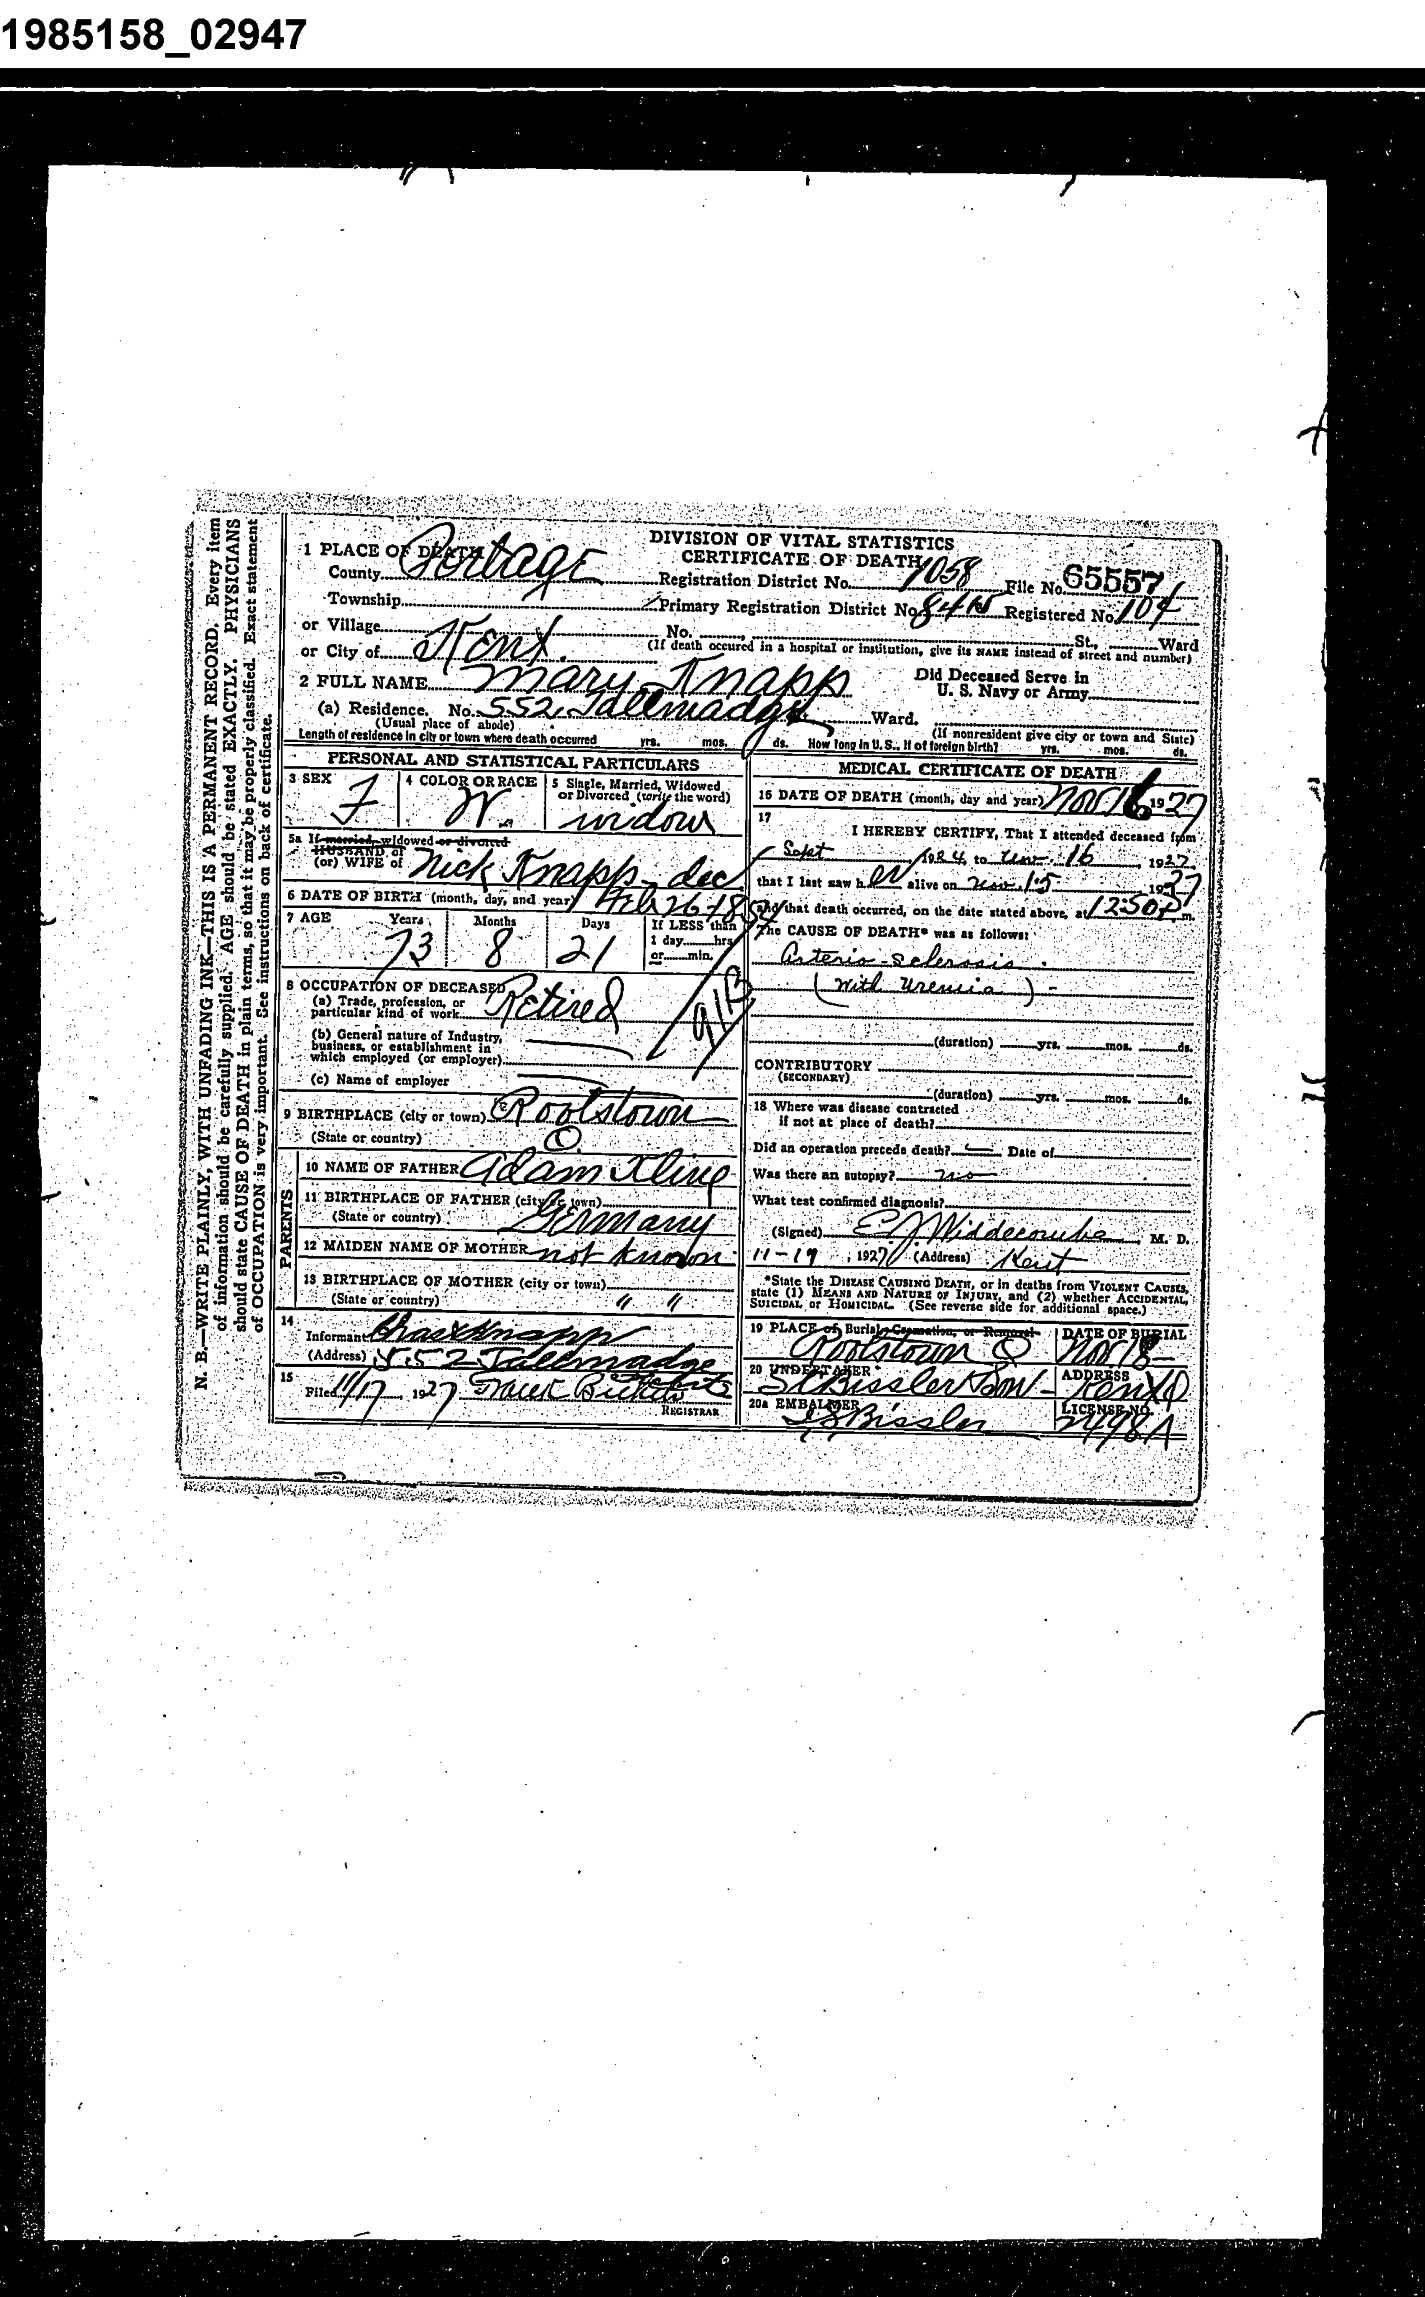 1985158_02947
N. B.—WRITE PLAINLY, WITH UNFADING INK—THIS IS A PERMANENT RECORD. Every item
of information should be carefully supplied. AGE should be stated EXACTLY. PHYSICIANS
should state CAUSE OF DEATH in plain terms, so that it may be properly classified. Exact statement
of OCCUPATION is very important. See instructions on back of certificate.
DIVISION OF VITAL STATISTICS
CERTIFICATE OF DEATH
1 PLACE OF DEATH
County Portage Registration District No. 1058 File No. 65557
Township Primary Registration District No. Registered No. 104
or Village No. St., Ward
or City of Kent. (If death occured in a hospital or institution, give its NAME instead of street and number)
2 FULL NAME Mary Knapp Did Deceased Serve in U. S. Navy or Army
(a) Residence. No. 552 Tallmadge Ward.
(Usual place of abode) (If nonresident give city or town and State)
Length of residence in city or town where death occurred yrs. mos. ds. How long in U. S., if of foreign birth? yrs. mos. ds.
PERSONAL AND STATISTICAL PARTICULARS
3 SEX F 4 COLOR OR RACE W. 5 Single, Married, Widowed or Divorced (write the word) widow
5a If married, widowed or divorced
HUSBAND of
(or) WIFE of Nick Knapp - dec
6 DATE OF BIRTH (month, day, and year) Feb 26-1854
7 AGE Years 73 Months 8 Days 21 If LESS than 1 day hrs. or min.
8 OCCUPATION OF DECEASED
(a) Trade, profession, or particular kind of work Retired
(b) General nature of Industry, business, or establishment in which employed (or employer)
(c) Name of employer
91B
9 BIRTHPLACE (city or town) Rootstown
(State or country) O.
PARENTS
10 NAME OF FATHER Adam Kline
11 BIRTHPLACE OF FATHER (city or town)
(State or country) Germany
12 MAIDEN NAME OF MOTHER not known
13 BIRTHPLACE OF MOTHER (city or town)
(State or country) " "
14 Informant Chas Knapp
(Address) 552 Tallmadge
15 Filed 11/17, 1927
REGISTRAR
MEDICAL CERTIFICATE OF DEATH
16 DATE OF DEATH (month, day and year) Nov 16 1927
17 I HEREBY CERTIFY, That I attended deceased from
Sept 1924 to Nov. 16, 1927
that I last saw her alive on Nov. 15 1927
and that death occurred, on the date stated above, at 12:50 P. m.
The CAUSE OF DEATH* was as follows:
Arterio-sclerosis.
(with Uremia) -
(duration) yrs. mos. ds.
CONTRIBUTORY
(SECONDARY)
(duration) yrs. mos. ds.
18 Where was disease contracted
if not at place of death?
Did an operation precede death? Date of
Was there an autopsy? no
What test confirmed diagnosis?
(Signed) E J Widdecombe, M. D.
11-19, 1927 (Address) Kent
*State the DISEASE CAUSING DEATH, or in deaths from VIOLENT CAUSES,
state (1) MEANS AND NATURE OF INJURY, and (2) whether ACCIDENTAL,
SUICIDAL, or HOMICIDAL. (See reverse side for additional space.)
19 PLACE of Burial, Cremation, or Removal DATE OF BURIAL
Rootstown O Nov 18-
20 UNDERTAKER ADDRESS
S C Bissler & Son - Kent O
20a EMBALMER LICENSE NO.
Bissler 2498A